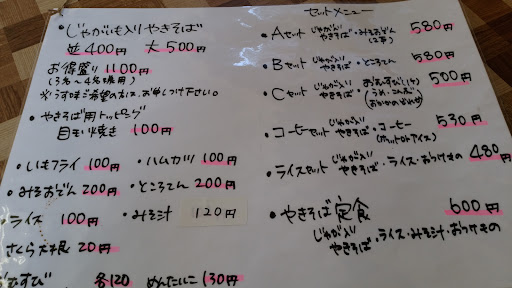 ・じゃがいも入りやきそば
並400円 大500円
お得盛り 1100円
(3名〜4名様用)
※うす味ご希望の方は、お申しつけ下さい。
・やきそば用トッピング
目玉焼き 100円
・いもフライ 100円
・ハムカツ 100円
・みそおでん 200円
・ところてん 200円
・ライス 100円
・みそ汁 120円
さくら大根 20円
むすび 各120 めんたいこ130円
セットメニュー
・Aセット じゃが入りやきそば・みそおでん(2本) 580円
・Bセット じゃが入りやきそば・ところてん 580円
・Cセット じゃが入りやきそば・おむすび(1ケ) 500円
・コーヒーセット じゃが入りやきそば・コーヒー(ホットorアイス) 530円
・ライスセット じゃが入りやきそば・ライス・おつけもの 480円
・やきそば定食 600円
じゃが入りやきそば・ライス・みそ汁・おつけもの